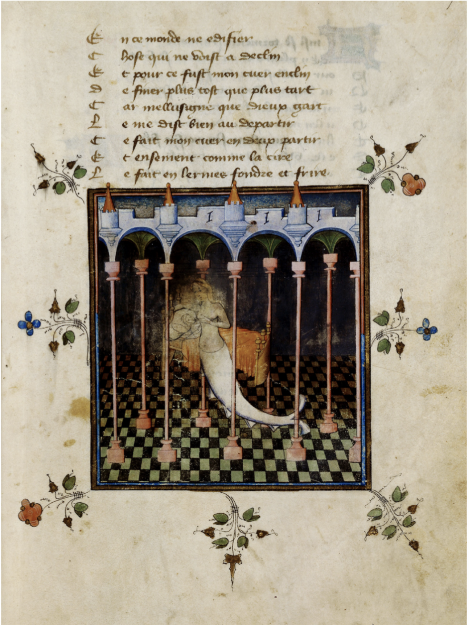 E n ce monde ne edifier
C hose qui ne voist a declin
E t pour ce fust mon cuer enclin
d e finer plus tost que plus tart
C ar mellusigne que dieux gart
L e me dist bien au departir
C e fait mon cuer en deux partir
E t ensement comme la cire
L e fait en lermes fondre et frire